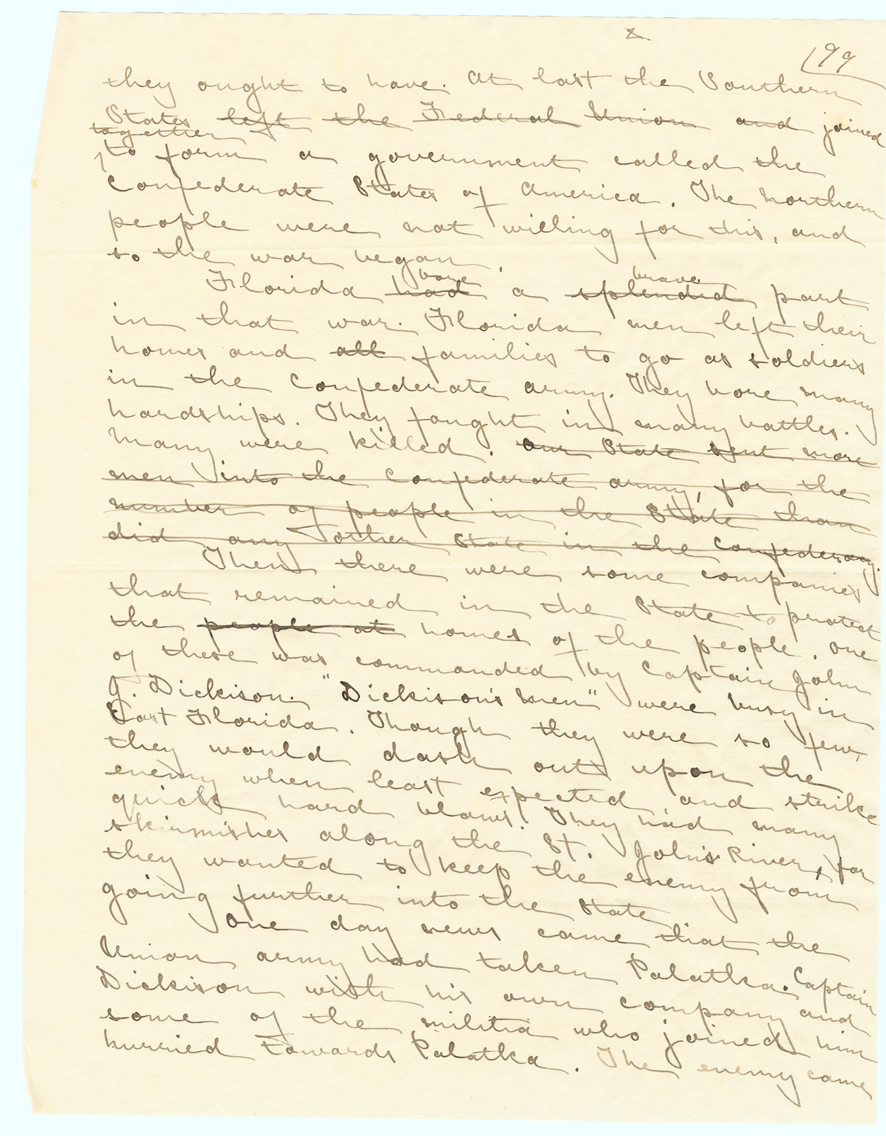 x
199
they ought to have. At last the Southern
States left the Federal Union and joined
together
to form a government called the
Confederate States of America. The Northern
people were not willing for this, and
so the war began.
bore brave
Florida had a splendid part
in that war. Florida men left their
homes and all families to go as soldiers
in the Confederate army. They bore many
hardships. They fought in many battles.
Many were killed. Our State sent more
men into the Confederate army, for the
number of people in the State than
did any other State in the Confederacy.
Then there were some companies
that remained in the State to protect
the people at homes of the people. One
of these was commanded by Captain John
J. Dickison. "Dickison's Men" were busy in
East Florida. Though they were so few,
they would dash out upon the
enemy when least expected and strike
quick hard blows. They had many
skirmishes along the St. John's River, for
they wanted to keep the enemy from
going further into the State.
One day news came that the
Union army had taken Palatka. Captain
Dickison with his own company and
some of the militia who joined him
hurried towards Palatka. The enemy came